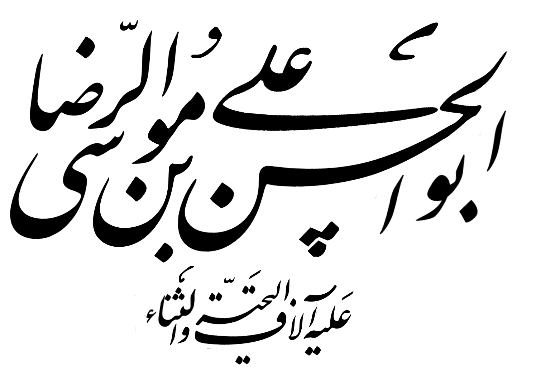 ابوالحسن علی بن موسی الرضا
علیه آلاف التحیّة والثناء